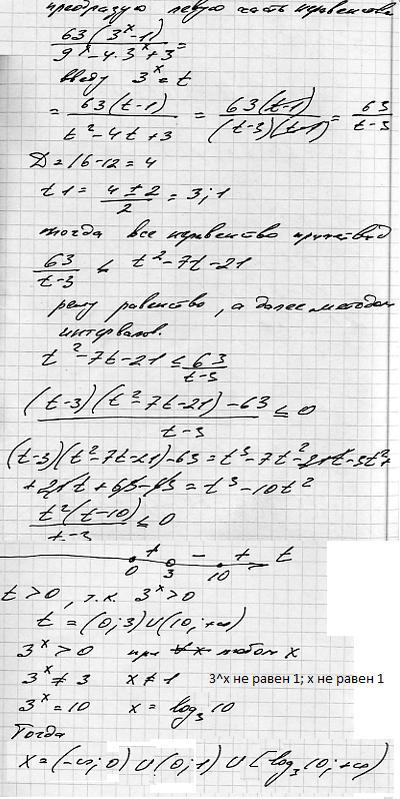 преобразую левую часть неравенства
63(3^x-1)/(9^x-4·3^x+3)=
введу 3^x=t
= 63(t-1)/(t^2-4t+3) = 63(t-1)/((t-3)(t-1)) = 63/(t-3)
D=16-12=4
t1= (4±2)/2 = 3;1
тогда все неравенство примет вид
63/(t-3) ≤ t^2-7t-21
решу равенство, а далее методом
интервалов.
t^2-7t-21 ≤ 63/(t-3)
((t-3)(t^2-7t-21)-63)/(t-3) ≤ 0
(t-3)(t^2-7t-21)-63=t^3-7t^2-21t-3t^2+
+21t+63-63=t^3-10t^2
t^2(t-10)/(t-3) ≤ 0
+ - + t
0 3 10
t>0, т.к. 3^x>0
t=(0;3)∪(10;+∞)
3^x>0 при любом x
3^x≠3 x≠1 3^x не равен 1; x не равен 1
3^x=10 x=log_3 10
Тогда
x=(-∞;0)∪(0;1)∪[log_3 10;+∞)